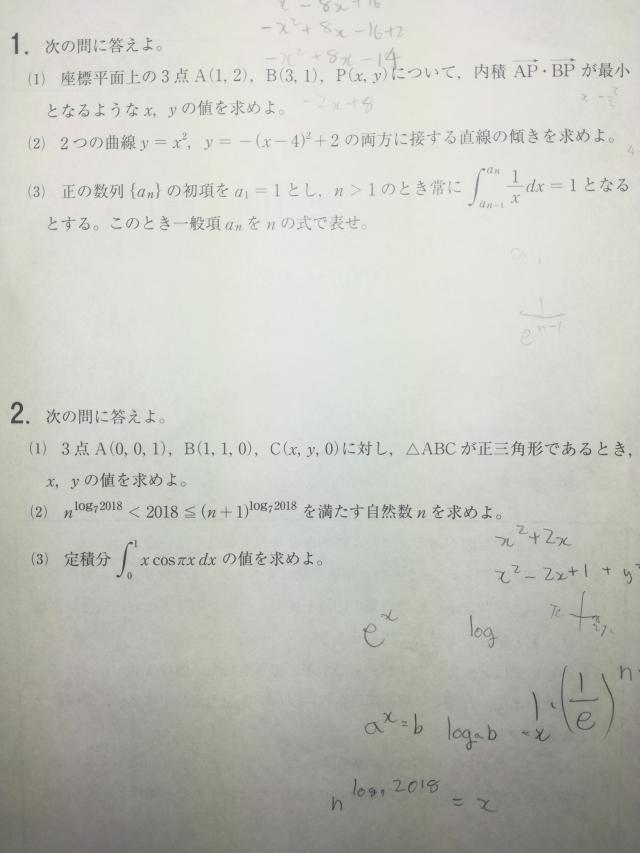 x - 8x + 16
-x² + 8x - 16 + 2
-x² + 8x - 14
1. 次の問に答えよ。
(1) 座標平面上の3点A(1, 2), B(3, 1), P(x, y)について，内積 AP・BP が最小
となるような x, y の値を求めよ。
-2x+8
(2) 2つの曲線 y = x², y = -(x-4)²+2 の両方に接する直線の傾きを求めよ。
(3) 正の数列 {aₙ} の初項を a₁ = 1 とし，n > 1 のとき常に ∫_{aₙ₋₁}^{aₙ} 1/x dx = 1 となる
とする。このとき一般項 aₙ を n の式で表せ。
a₁
1/e^{n-1}
2. 次の問に答えよ。
(1) 3点 A(0, 0, 1), B(1, 1, 0), C(x, y, 0)に対し，△ABC が正三角形であるとき，
x, y の値を求めよ。
(2) n^{log₇2018} < 2018 ≦ (n+1)^{log₇2018} を満たす自然数 n を求めよ。
(3) 定積分 ∫₀¹ x cosπx dx の値を求めよ。
x² + 2x
x² - 2x + 1 + y²
e^x log
a^x = b log_a b = x
1・(1/e)^{n-
n^{log₇2018} = x